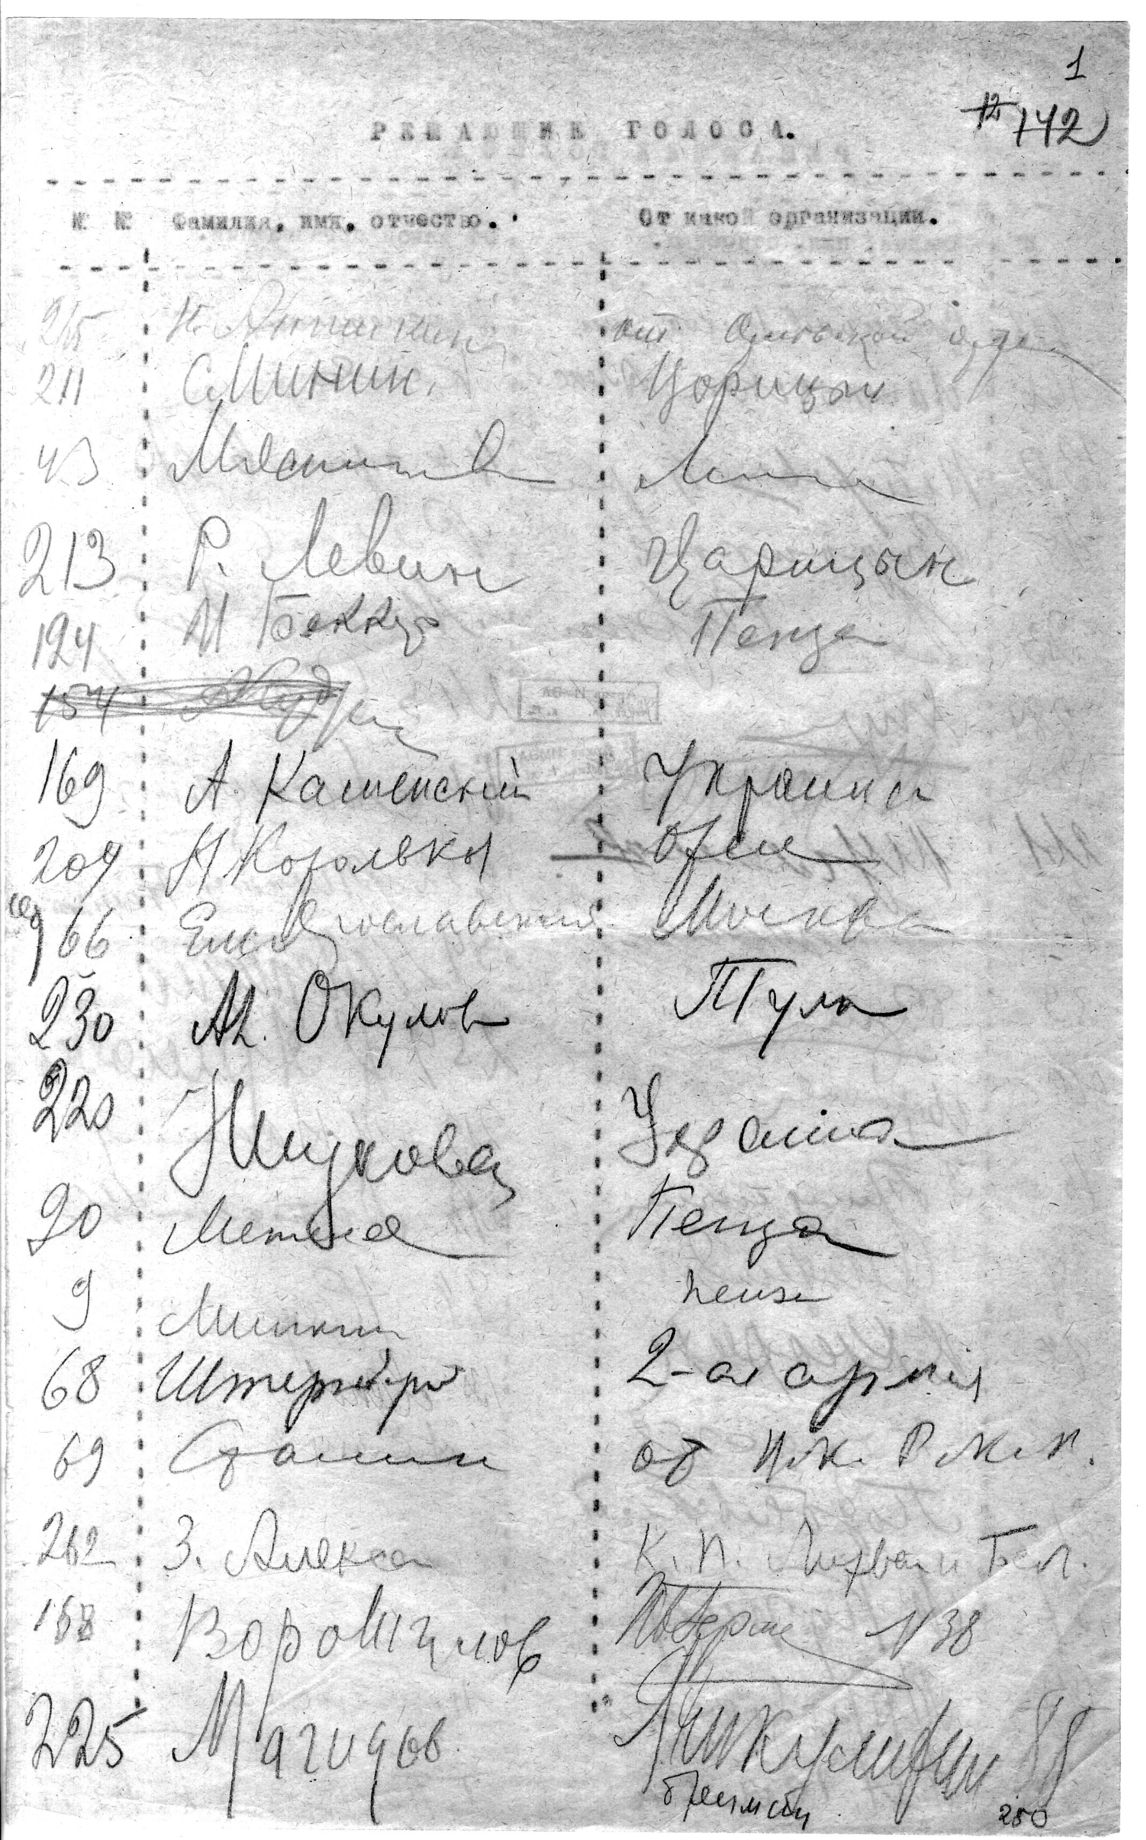 1
12 142
РЕШАЮЩИЕ ГОЛОСА.
№ № Фамилия, имя, отчество. От какой организации.
265 от
211 С Минин. Царицын
43
213 Р. Левин Царицын
124 И Беккер Пенза
154
169 А. Каменский Украина
209 Н Корольков Орел
66 Ем. Ярославский Москва
230 Ал. Окулов Тула
220 Жукова Украина
90 Пенза
9 Минкин Пенза
68 Штернберг 2-ая армия
69 Сталин от Ц.К. Р.К.П.
262 З. Алекса К.П. Литвы и Бел.
158 Ворошилов N 38
225 Магидов
250